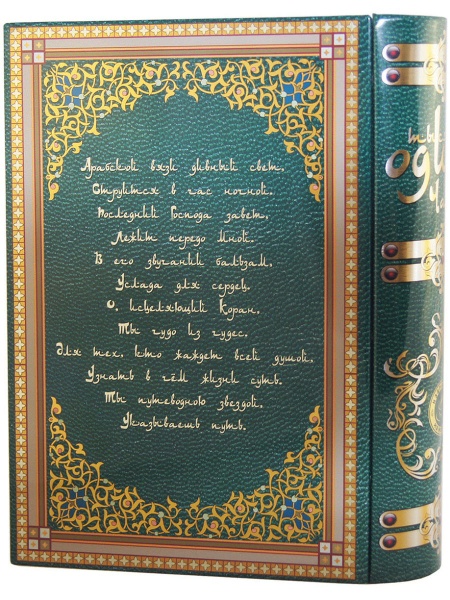 Арабской вязи дивный свет,
Струится в час ночной.
Последний Господа завет,
Лежит передо мной.
В его звучании бальзам,
Услада для сердец,
О, исцеляющий Коран,
Ты чудо из чудес.
Для тех, кто жаждет всей душой,
Узнать в чём жизни суть.
Ты путеводною звездой,
Указываешь путь.